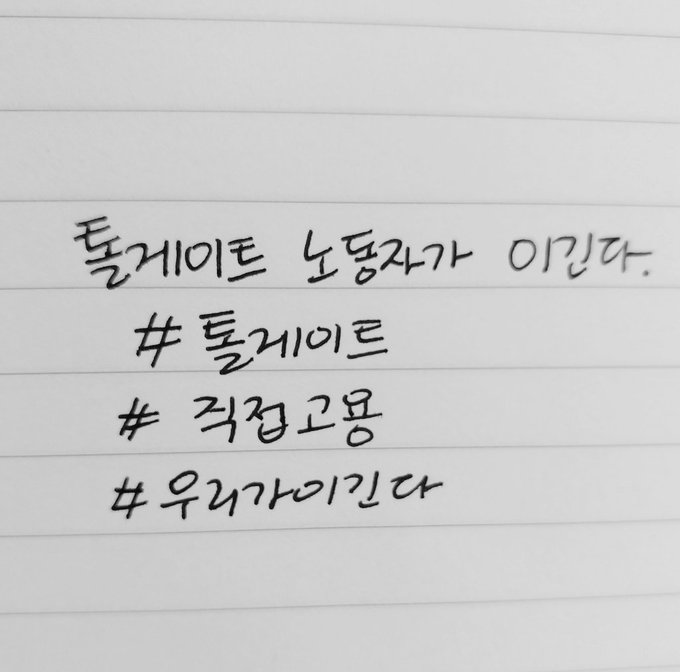 톨게이트 노동자가 이긴다.
# 톨게이트
# 직접고용
#우리가이긴다